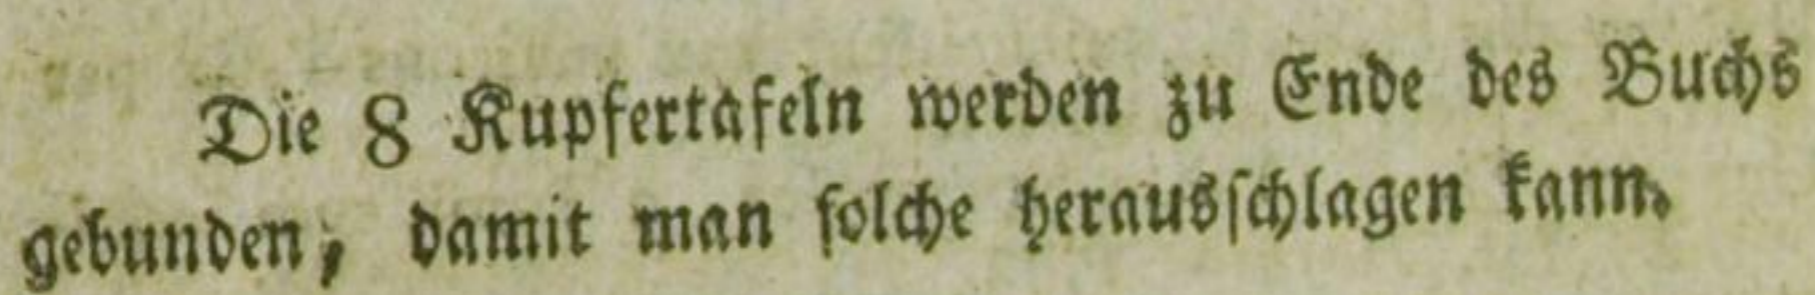 Die 8 Kupfertafeln werden zu Ende des Buchs
gebunden, damit man ſolche herausſchlagen kann.